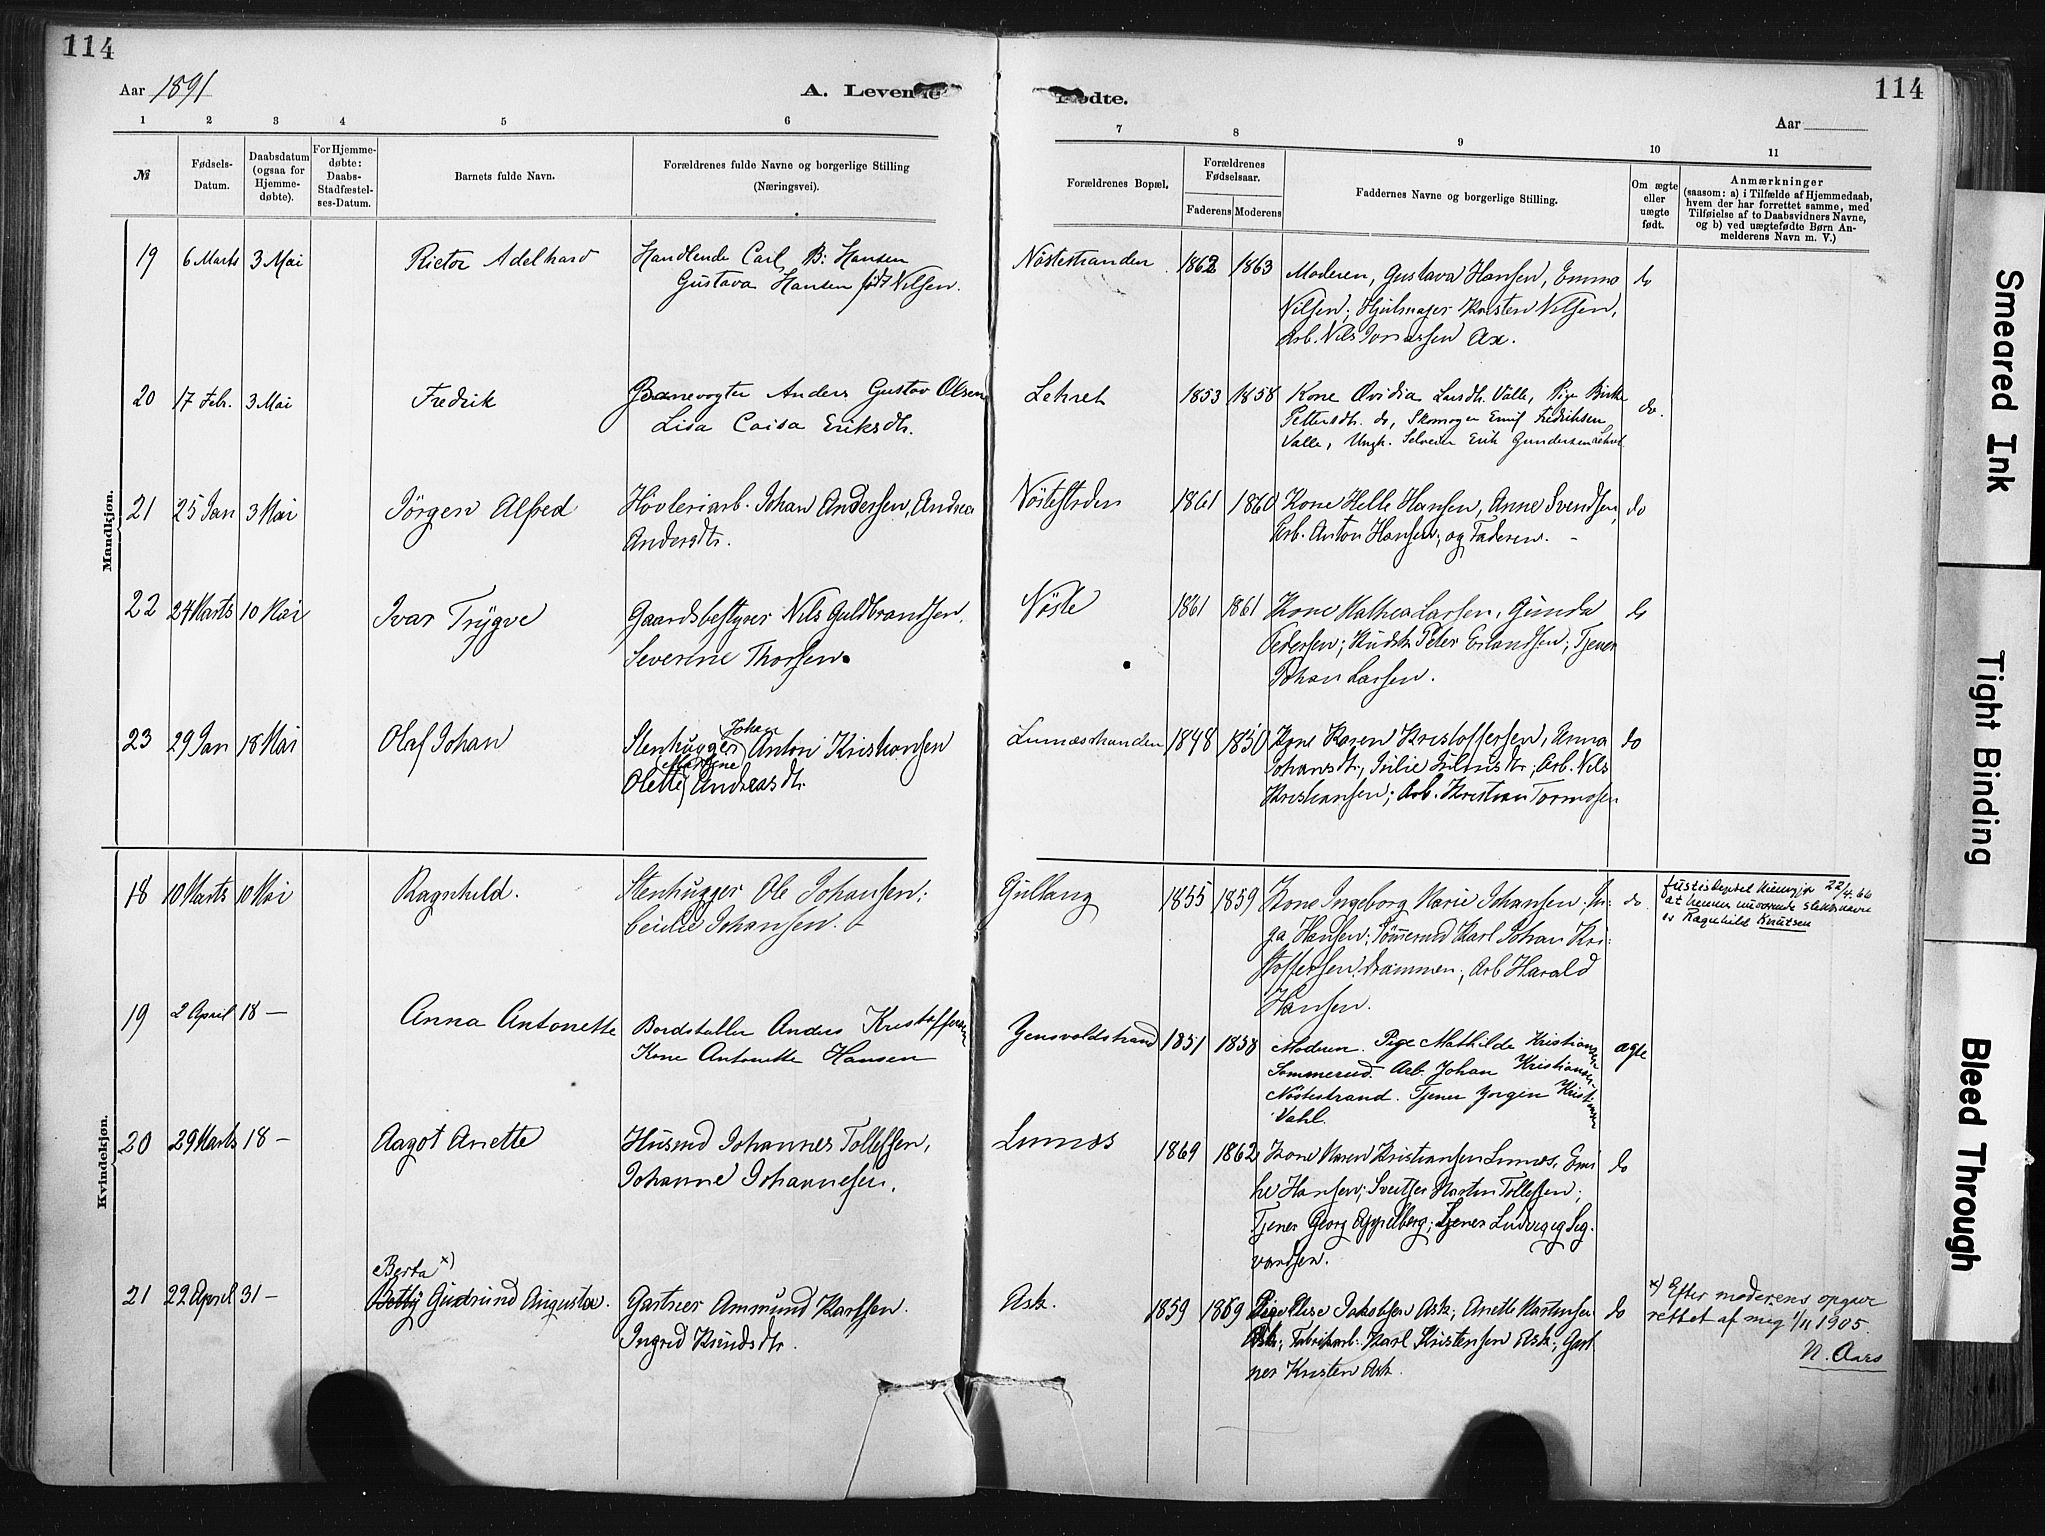 114
Aar 1891
A. Levende
1 2 3 4 5 6
№
Fødsels-
Datum.
Daabsdatum
(ogsaa for
Hjemme-
døbte).
For Hjemme-
døbte:
Daabs-
Stadfæstel-
ses-Datum.
Barnets fulde Navn.
Forældrenes fulde Navne og borgerlige Stilling
(Næringsvei).
Mandkjøn.
19 6 Marts 3 Mai Adelhard Handlende Carl B. Hansen
Gustava Hansen født Nilsen.
20 17 Febr. 3 Mai Fredrik Banevogter Anders Gustav Olsen
Lisa Caisa Eriksdtr.
21 25 Jan 3 Mai Jörgen Alfred Hövleriarb. Johan Andersen, Andrea
Andersdtr.
22 24 Marts 10 Mai Ivar Trygve Gaardsbestyrer Nils Guldbrandsen.
Severine Thorsen.
23 29 Jan 18 Mai Olaf Johan Stenhugger Johan Anton Kristiansen
Olette Martine Andreasdtr.
Kvindekjøn.
18 10 Marts 10 Mai Ragnhild. Stenhugger Ole Johansen;
Johansen.
19 2 April 18 — Anna Antonette Bordstabler Anders Kristoffersen
Kone Antonette Hansen
20 29 Marts 18 — Aagot Anette Husmd Johannes Tollefsen,
Johanne Johannesen.
Berta x)
21 22 April 31 — Betty Gudrund Augusta. Gartner Ammund Karlsen.
Ingrid Knudsdtr.
114
Fødte.
Aar
7 8 9 10 11
Forældrenes Bopæl.
Forældrenes
Fødselsaar.
Faderens Moderens
Faddernes Navne og borgerlige Stilling.
Om ægte
eller
uægte
født.
Anmærkninger
(saasom: a) i Tilfælde af Hjemmedaab,
hvem der har forrettet samme, med
Tilføielse af to Daabsvidners Navne,
og b) ved uægtefødte Børn An-
melderens Navn m. V.)
Nöstestranden 1862 1863 Moderen, Gustava Hansen, Emma do
Nilsen; Hjulmager Kristen Nilsen,
Arb. Nils Jonassen Ax.
Lehret 1853 1858 Kone Ovidia Larsdtr. Valle, Pige
Pettersdtr. do, Skomager Emil Fredriksen do.
Valle, Ungk. Selveier Erik Gundersen Lehret
Nöstestrden 1861 1860 Kone Helle Hansen, Anne Svendsen, do
Arb. Anton Hansen; og Faderen. -
Nöste 1861 1861 Kone Mathea Larsen, Gunda do
Pedersen; Kudsk Peter Erlandsen; Tjener
Johan Larsen.
Lunæsstranden 1848 1850 Kone Karen Kristoffersen, Anna do
Johansdtr, Julie Juliusdtr; Arb. Nils
Kristiansen; Arb. Kristian Tormosen
Gullaug 1855 1859 Kone Ingeborg Marie Johansen; In- do.
ga Hansen; Tömmermd Karl Johan Kri-
stoffersen Drammen; Arb Harald
Hansen.
Justisdeptet 22/4.66
at hennes nuværende slektsnavn
er Ragnhild Knutsen
Gensvoldstrand 1851 1858 Moderen. Pige Mathilde Kristiansen ægte
Sommerud. Arb. Johan Kristiansen
Nöstestrand. Tjener Jorgen Kristiansen
Vahl.
Lunæs 1869 1862 Kone Maren Kristiansen Lunæs, Emi do
lie Hansen; Sveitser Martin Tollefsen;
Tjener Georg Appelberg; Tjener Ludvig Sig-
vardsen.
Ask. 1859 1869 Pige Else Jakobsen Ask; Anette Martinsen do
Ask; Fabrikarb. Karl Kristensen Ask; Gart
ner Kristen Ask.
x) Efter moderens opgave
rettet af mig 1/11 1905.
N. Aars
Smeared Ink
Tight Binding
Bleed Through